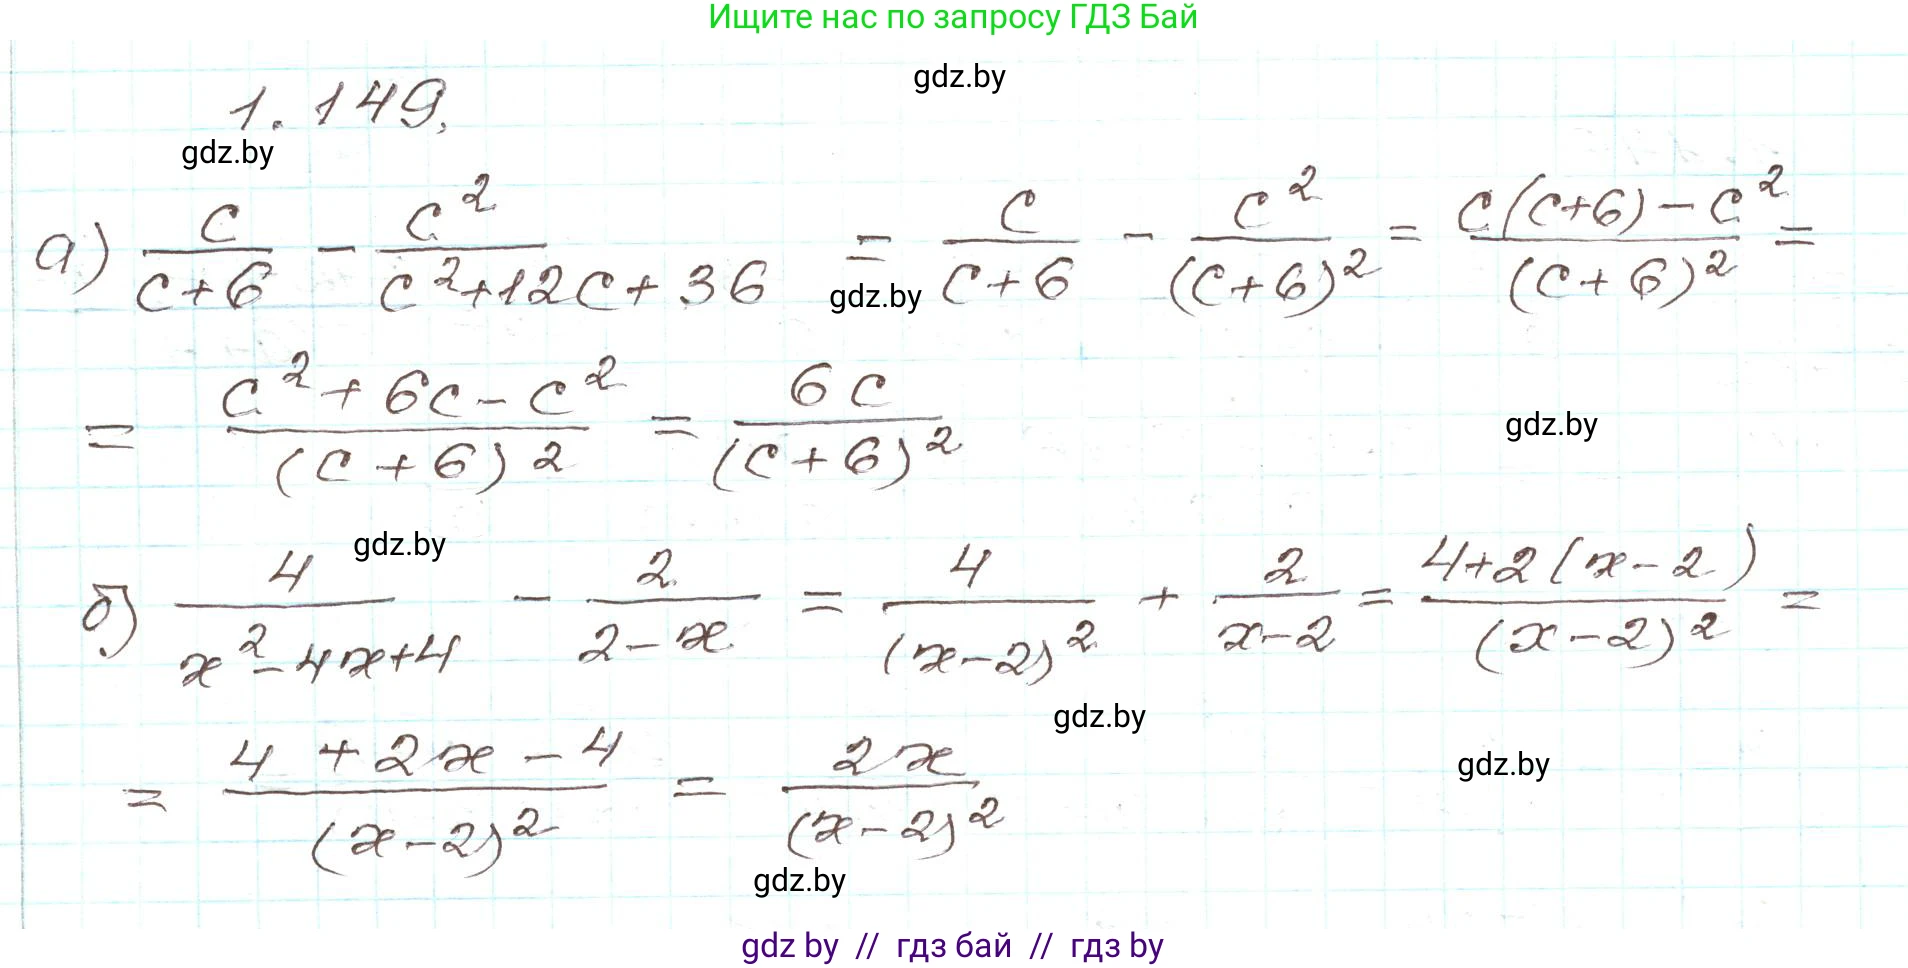 Ищите нас по запросу ГДЗ Бай
gdz.by
1.149.
gdz.by
а) c/(c+6) - c²/(c²+12c+36) = c/(c+6) - c²/(c+6)² = (c(c+6)-c²)/(c+6)² =
gdz.by
= (c²+6c-c²)/(c+6)² = 6c/(c+6)²
gdz.by
gdz.by
б) 4/(x²-4x+4) - 2/(2-x) = 4/(x-2)² + 2/(x-2) = (4+2(x-2))/(x-2)² =
gdz.by
= (4+2x-4)/(x-2)² = 2x/(x-2)²
gdz.by
gdz.by
gdz by // гдз бай // гдз by